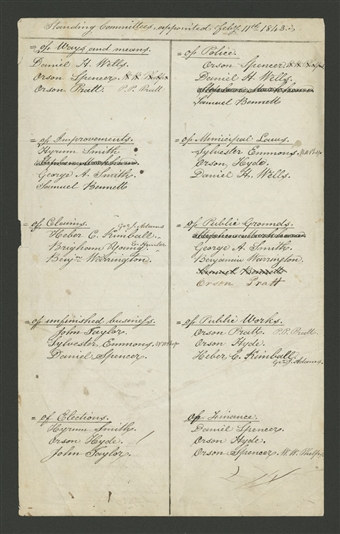 Standing Committees, appointed Feby. 11th 1843.
= of Ways and means.
Daniel H. Wells.
Orson Spencer
Orson Pratt. P. P. Pratt.
= of Improvements.
Hyrum Smith
George A. Smith.
Samuel Bennett
= of Claims. Geo. J. Adams
Heber C. Kimball.
Brigham Young
Benjn. Warrington.
= of unfinished business.
John Taylor.
Sylvester Emmons.
Daniel Spencer.
= of Elections.
Hyrum Smith.
Orson Hyde.
John Taylor.
= of Police.
Orson Spencer
Daniel H. Wells.
Samuel Bennett
= of Municipal Laws.
Sylvester Emmons.
Orson Hyde.
Daniel H. Wells.
= of Public Grounds.
George A. Smith.
Benjamin Warrington.
Samuel Bennett
Orson Pratt
= of Public Works.
Orson Pratt. P. P. Pratt.
Orson Hyde.
Heber C. Kimball.
Geo. J. Adams.
Of Finance.
Daniel Spencer.
Orson Hyde.
Orson Spencer. W. W. Phelps